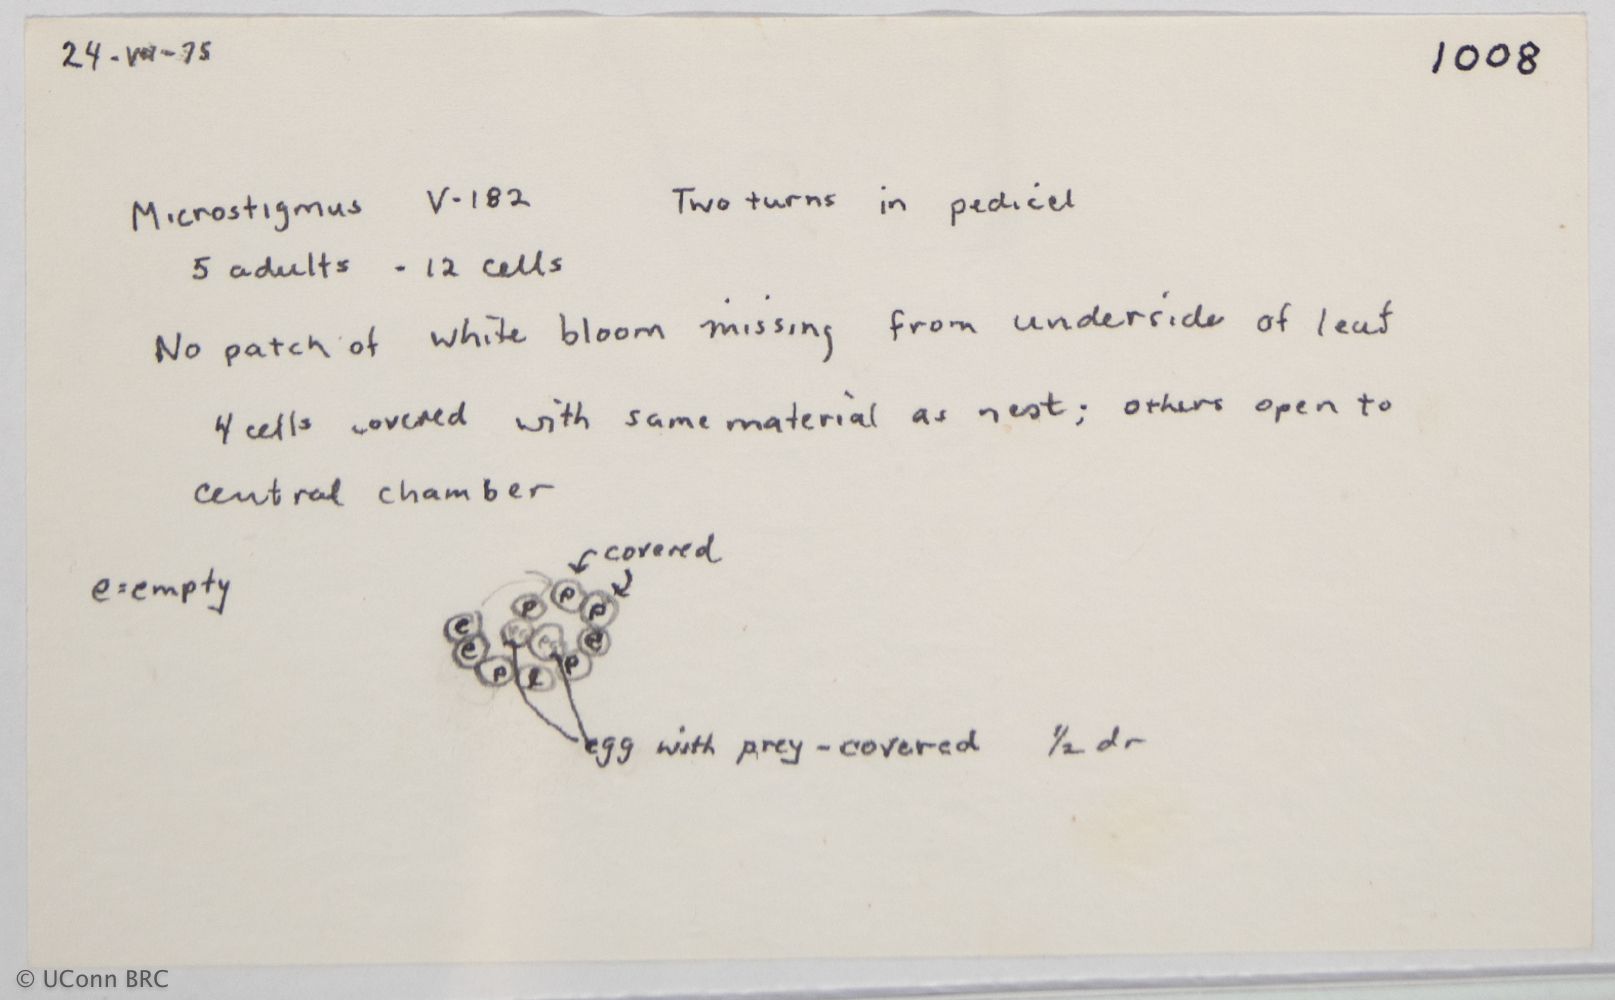 24-VII-75
1008
Microstigmus V-182 Two turns in pedicel
5 adults - 12 cells
No patch of white bloom missing from underside of leaf
4 cells covered with same material as nest; others open to
central chamber
covered
e=empty
p p p
e e
e p
p l
egg with prey-covered 1/2 dr
© UConn BRC